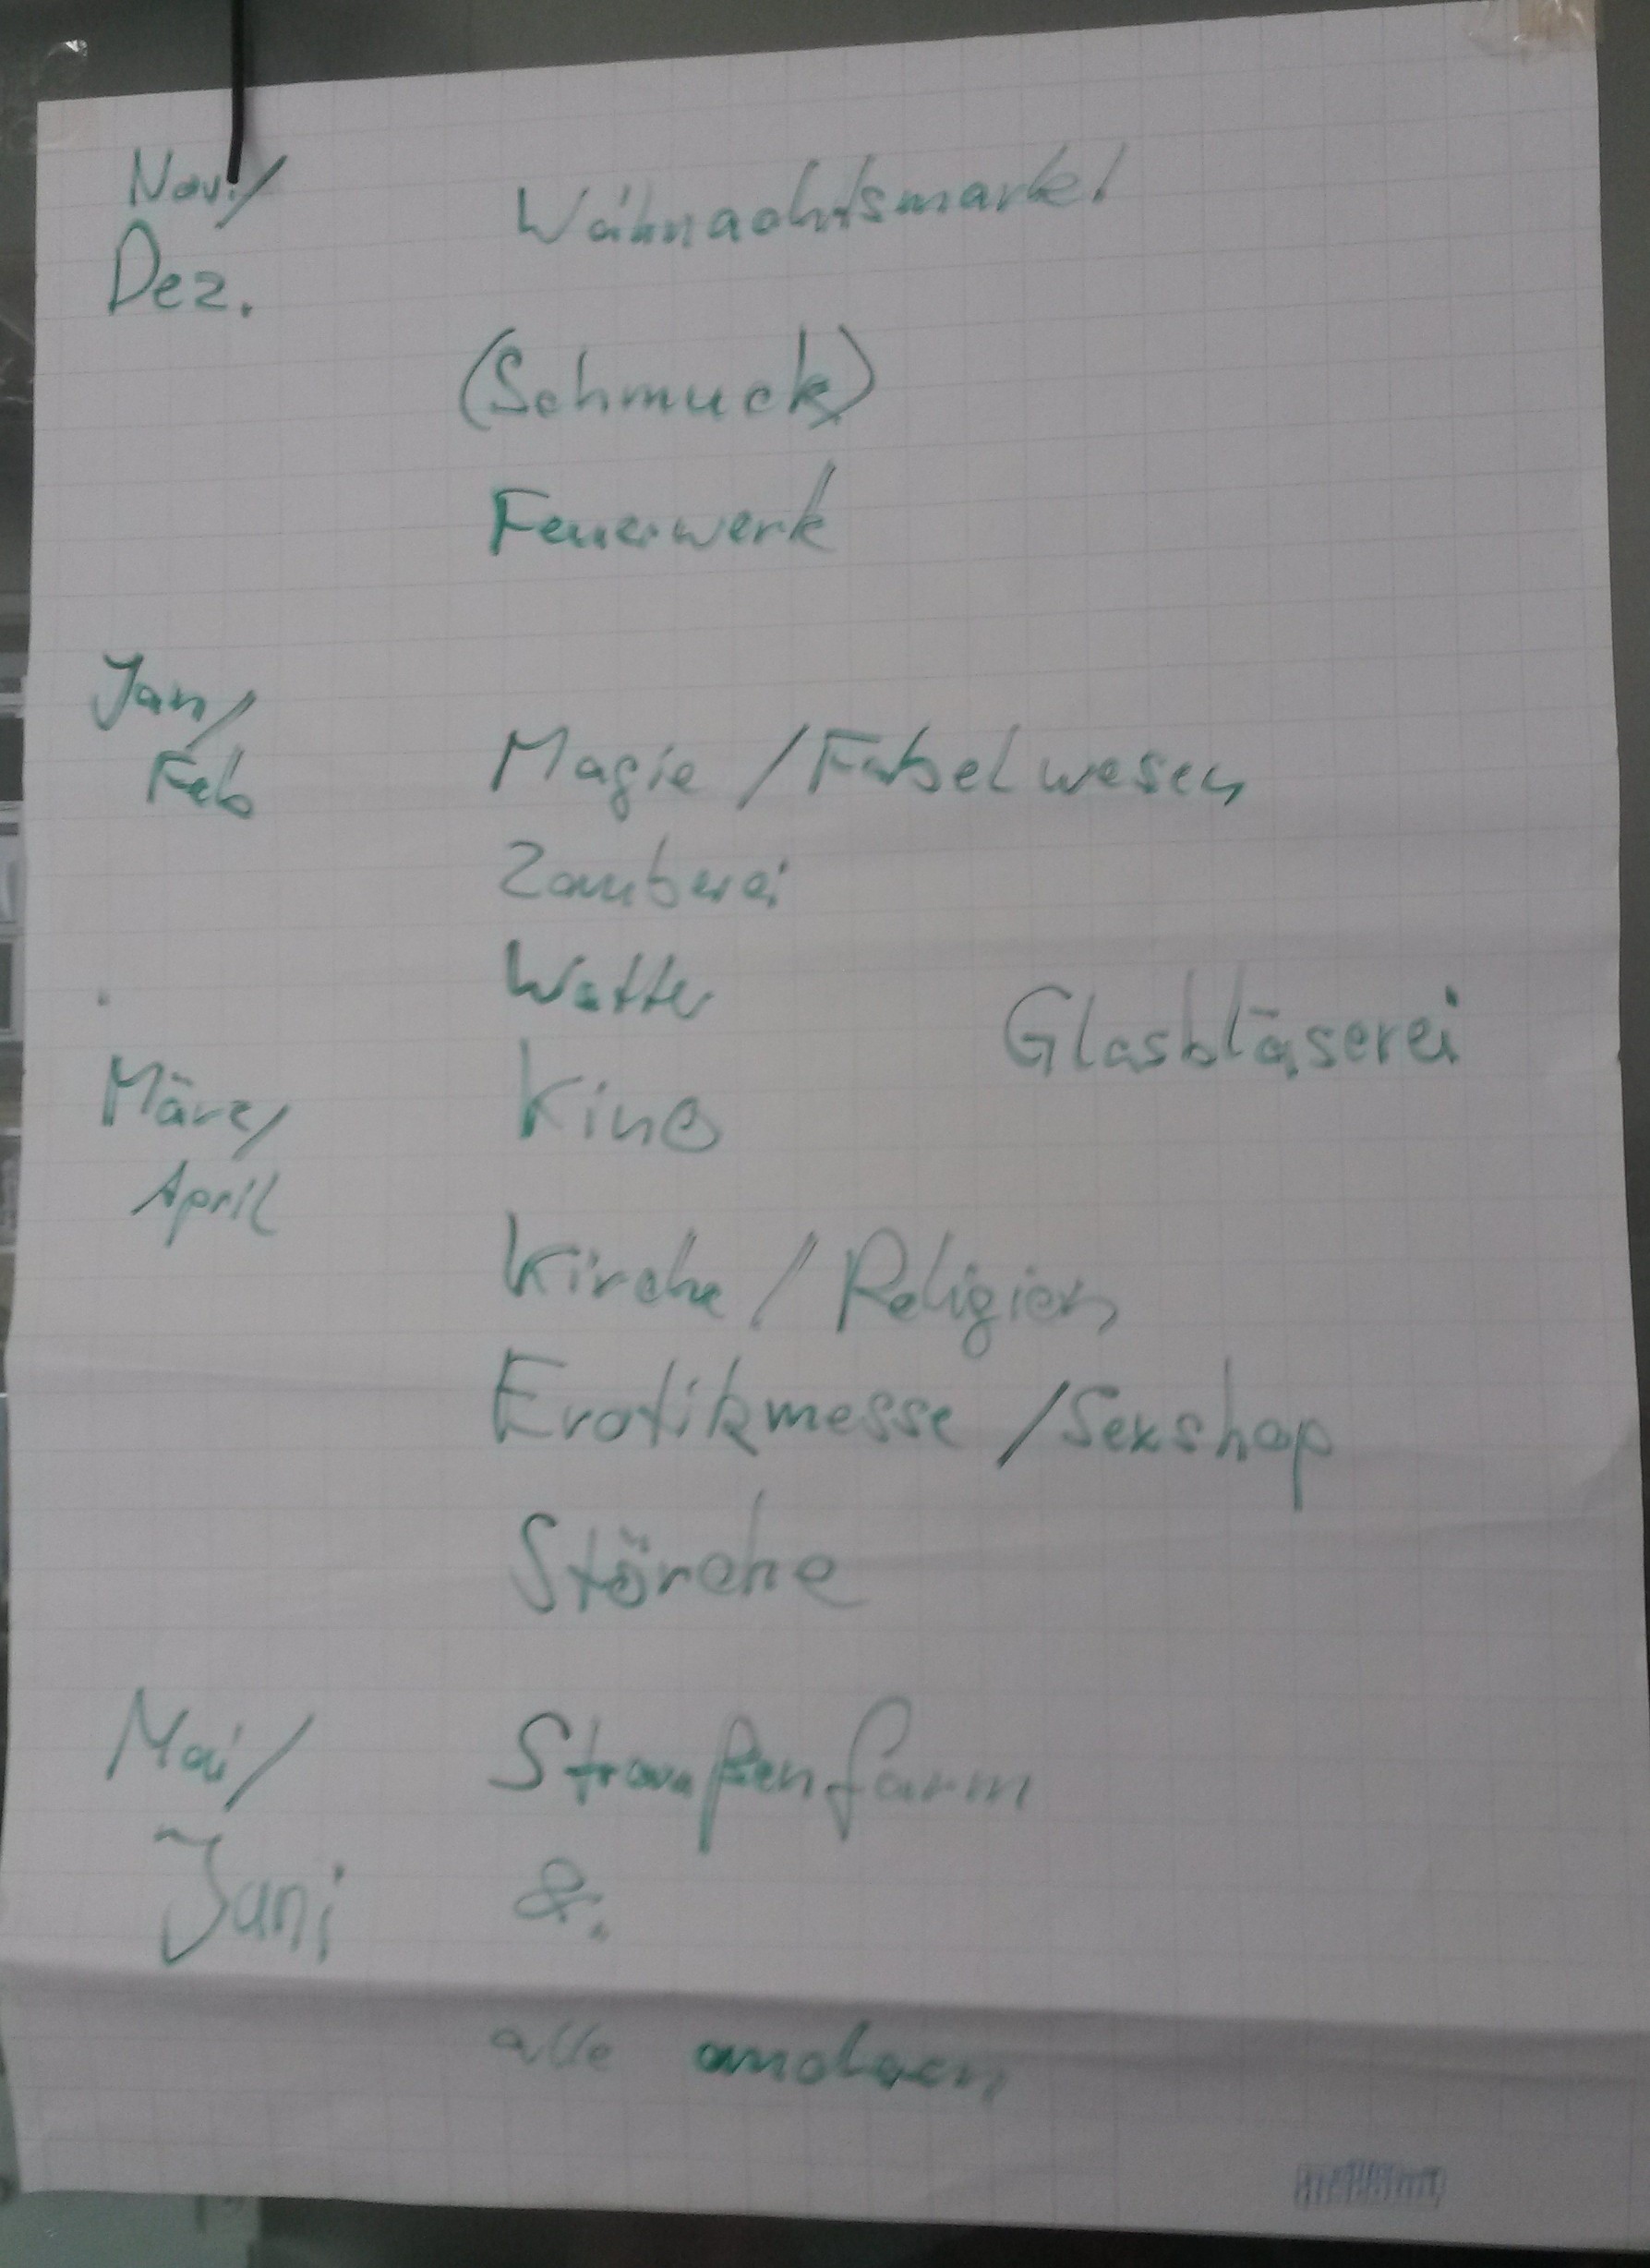 Nov./ Wähnachtsmarkt
Dez.
(Schmuck)
Feuerwerk
Jan/
Feb Magie / Fabelwesen
Zauberei
Wetter
Glasbläserei
März/ Kino
April
Kirche / Religion
Erotikmesse / Sexshop
Störche
Mai/ Straußenfarm
Juni &.
alle anderen